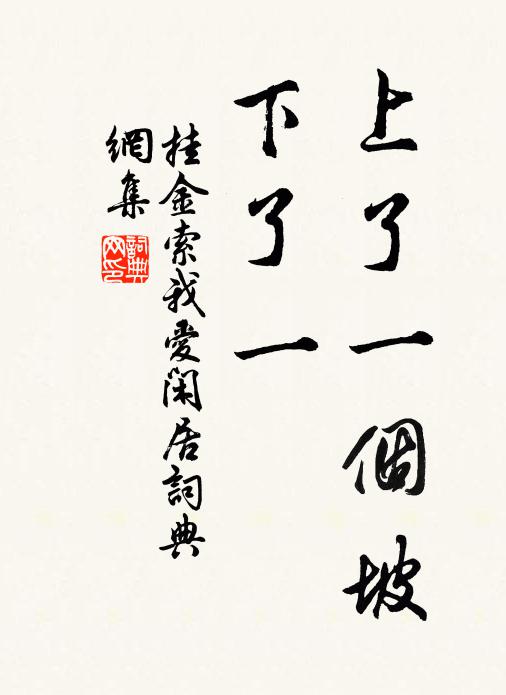 上了一個坡
下了一
挂金索我愛閑居詞典
網集
詞典
网印